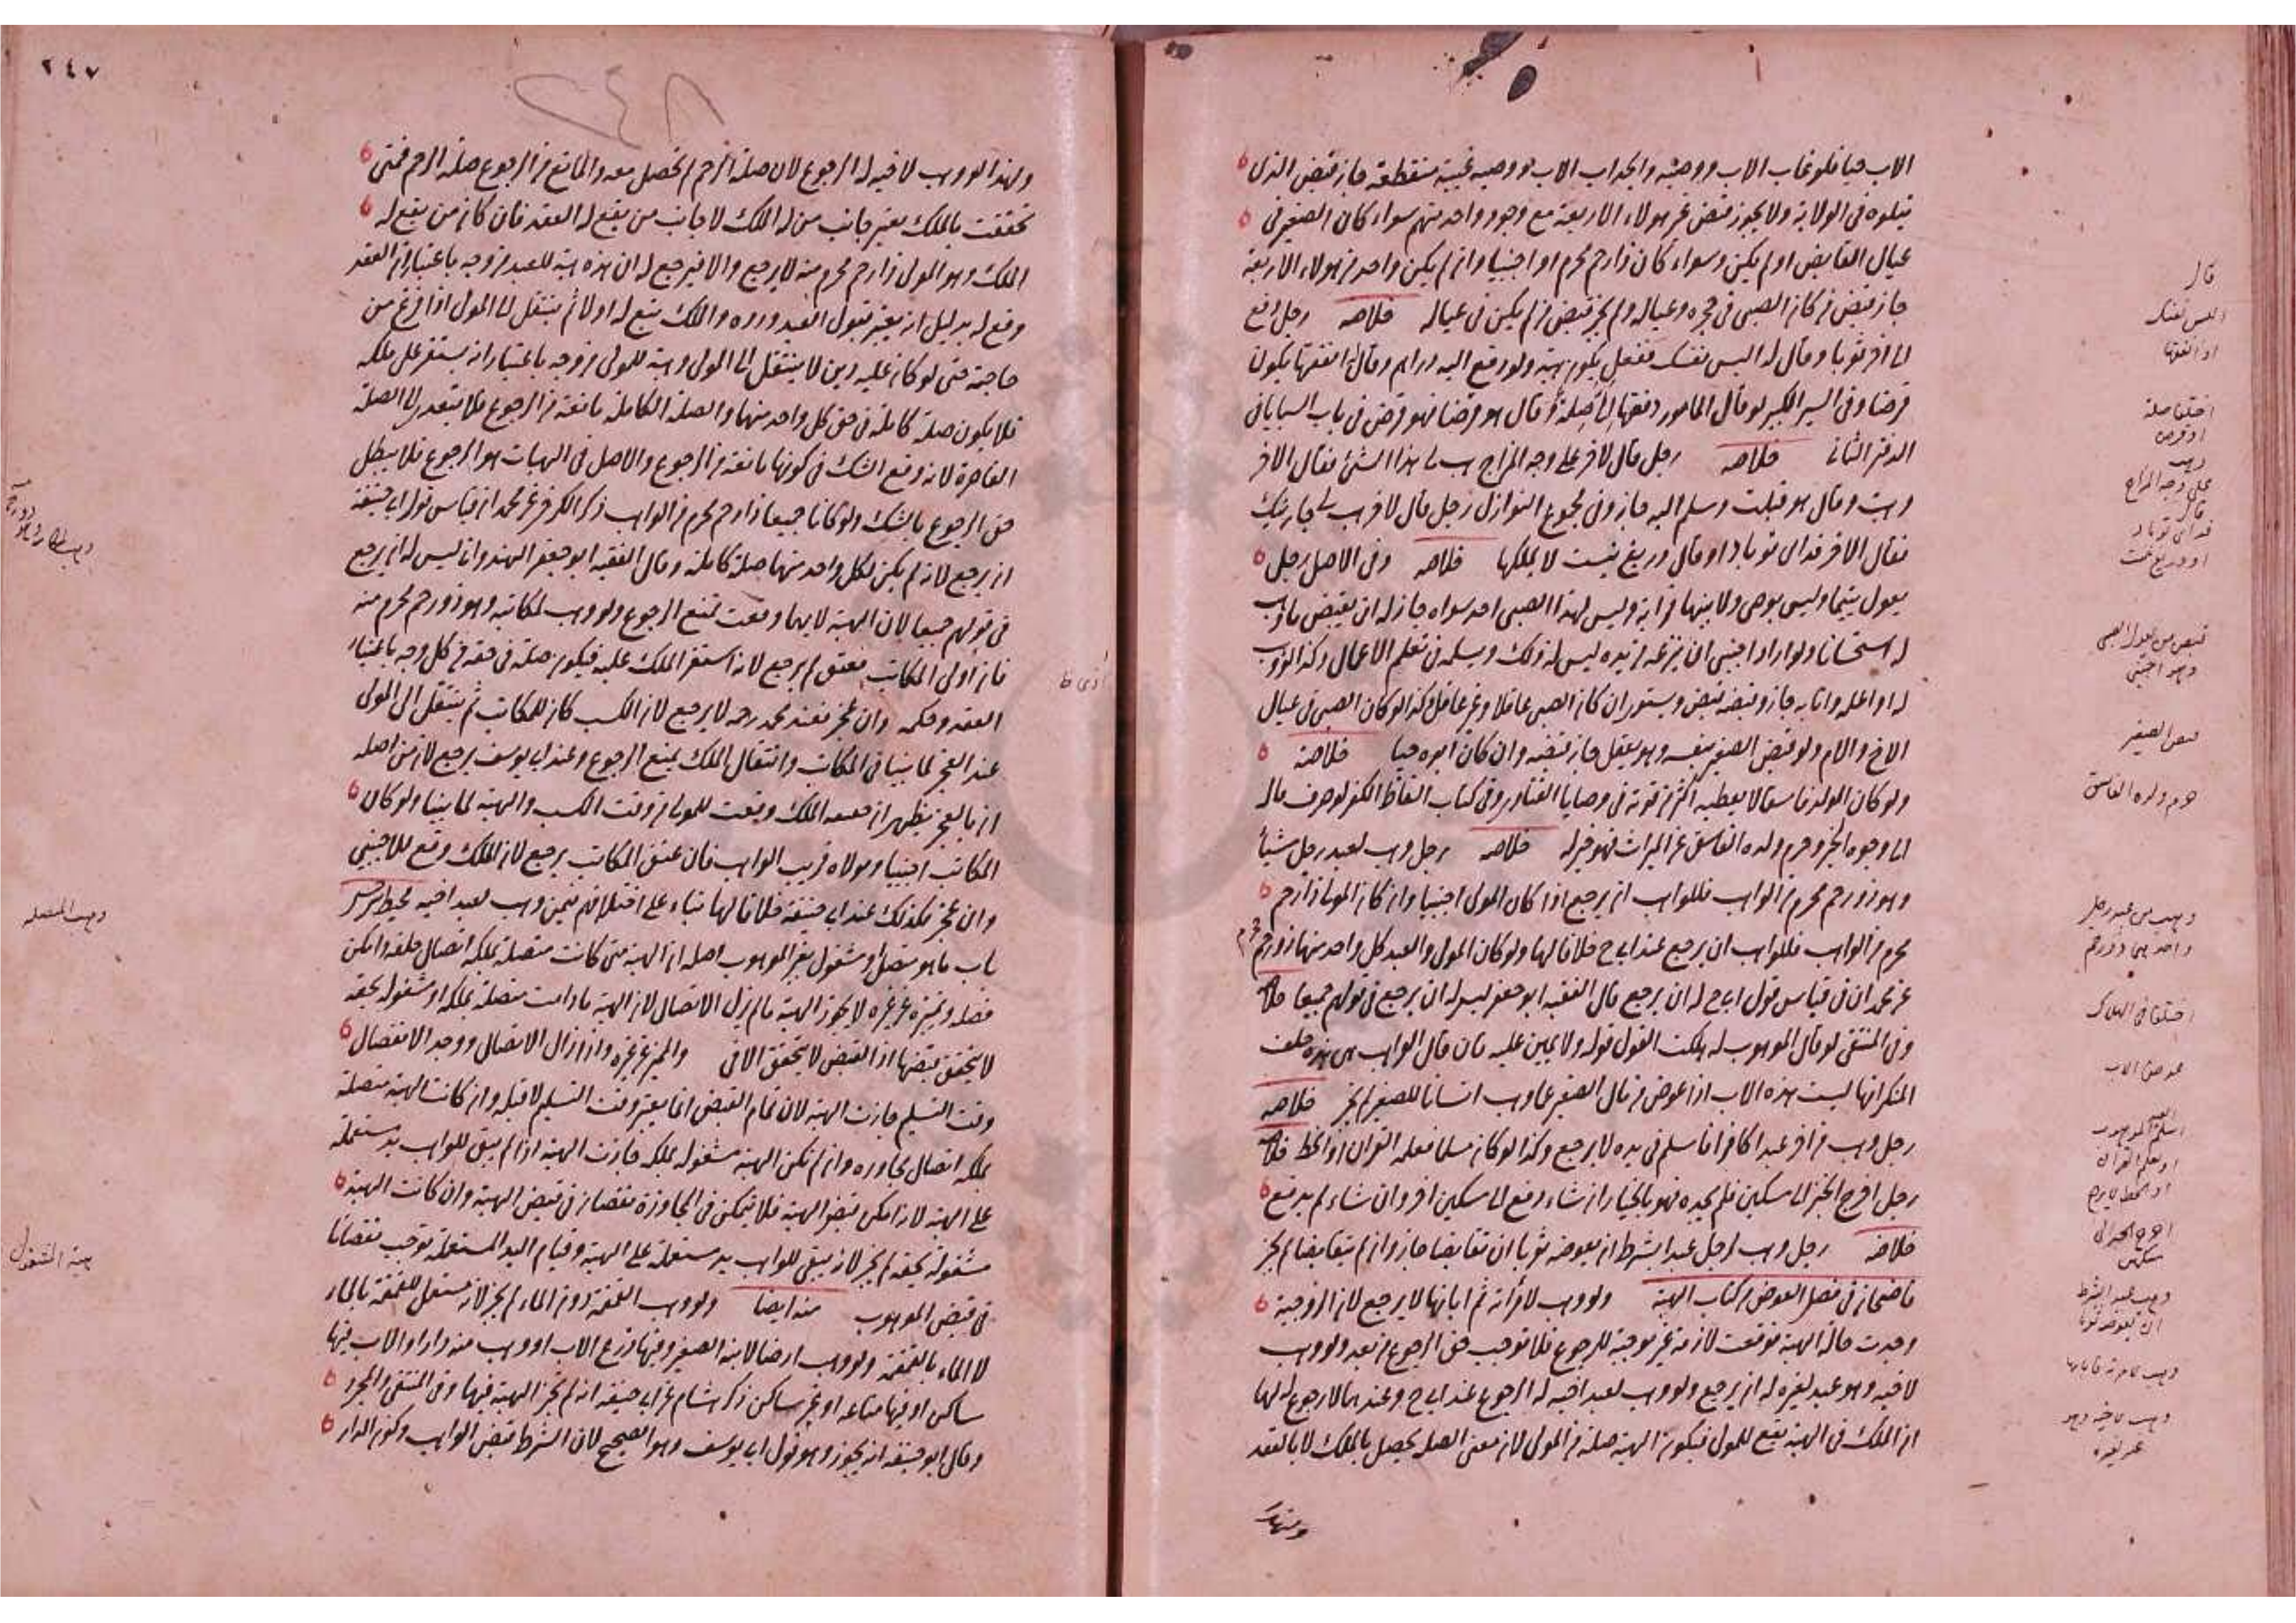 الاب حيا فلو غاب الاب ووصيه والجد اب الاب ووصيه غيبة منقطعة جاز قبض الذي
يتلوه في الولاية ولا يجوز قبض غير هولاء الاربعة مع وجود واحد منهم سواء كان الصغير في
عيال القابض او لم يكن وسواء كان ذا رحم محرم او اجنبيا وان لم يكن واحد من هولاء الاربعة
جاز قبض من كان الصبي في حجره وعياله ولم يجز قبض من لم يكن في عياله خلاصه رجل دفع
الى اخر ثوبا وقال له البس نفسك ففعل يكون هبة ولو دفع اليه دراهم وقال انفقها يكون
قرضا وفي السير الكبير لو قال المامور دفعتها الي صلة وقال هو قرضا فهو قرض في باب السبايا في
الدفتر الثاني خلاصه رجل قال لاخر على وجه المزاح هب لي هذا الشئ فقال الاخر
وهبت وقال هو قبلت وسلم اليه جاز وفي مجموع النوازل رجل قال لاخر هب لي جاريتك
فقال الاخر فداى تو باد او قال دريغ نيست لا يملكها خلاصه وفي الاصل رجل
يعول يتيما وليس بوصي ولا بينهما قرابة وليس لهذا الصبي احد سواه جاز له ان يقبض ما وهب
له استحسانا ولو اراد اجنبي ان ينزعه من يده ليس له ذلك ويسلمه في تعلم الاعمال وكذا لو وهب
الاخ والام ولو قبض الصغير بنفسه وهو يعقل جاز قبضه وان كان ابوه حيا خلاصة
ولو كان الولد فاسقا لا يعطيه اكثر من قوته في وصايا الفتاوى وفي كتاب الفاظ الكفر لو صرف ماله
الى وجوه الخير وحرم ولده الفاسق عن الميراث فهو خير له خلاصه رجل وهب لعبد رجل شيأ
وهو ذو رحم محرم من الواهب فللواهب ان يرجع اذا كان المولى اجنبيا وان كان المولى ذا رحم
محرم من الواهب فللواهب ان يرجع عند ابي ح خلافا لهما ولو كان المولى والعبد كل واحد منهما ذو رحم محرم
عن محمد ان في قياس قول ابي ح له ان يرجع قال الفقيه ابو جعفر ليس له ان يرجع في قولهم جميعا خلاصه
وفي المنتقى لو قال الموهوب له هلكت القول قوله ولا يمين عليه فان قال الواهب هي هذه حلف
المنكر انها ليست هذه الاب اذا عوض من مال الصغير عما وهب انسانا للصغير لم يجز خلاصه
رجل وهب من اخر عبدا كافرا فاسلم في يده لا يرجع وكذا لو كان مسلما فعلمه القران او الخط خلاصه
رجل اخرج الخبز الى مسكين فلم يجده فهو بالخيار ان شاء دفع الى مسكين اخر وان شاء لم يدفع
خلاصه رجل وهب لرجل عبدا بشرط ان يعوضه ثوبا ان تقابضا جاز وان لم يتقابضا لم يجز
قاضيخان في فصل العوض من كتاب الهبة ولو وهب لامرأته ثم ابانها لا يرجع لان الزوجية
وجدت حالة الهبة فوقعت لازمة غير موجبة للرجوع فلا توجب حق الرجوع من بعد ولو وهب
لاخيه وهو عبد لغيره له ان يرجع ولو وهب لعبد اخيه له الرجوع عند ابي ح وعندهما لا رجوع له لهما
ان الملك في الهبة يقع للمولى فيكون الهبة صلة في المولى لان معنى الصلة يحصل بالملك لا بالعقد
ولهذا
قال
البس نفسك
او انفقها
اختلفا صلة
او قرض
وهب
على وجه المزاح
قال
فداى تو باد
قبض من يعول الصبي
وهو اجنبي
قبض الصغير
حرم ولده الفاسق
وهب من عبد رجل
اختلفا في الهلاك
عوض الاب
او علم القران
وهب عبدا بشرط
ان يعوضه ثوبا
وهب لامرأته فابانها
وهب لاخيه وهو
عبد لغيره
٢٤٧
٢٤٨
ولهذا لو وهب لاخيه له الرجوع لان صلة الرحم لم تحصل معه والمانع من الرجوع صلة الرحم فمتى
تحققت بالملك يعتبر جانب من له الملك لا جانب من يقع له العقد فان كان من يقع له
الملك وهو المولى ذا رحم محرم منه لا يرجع والا فيرجع له ان هذه هبة للعبد من وجه باعتبار ان العقد
وقع له بدليل انه يعتبر قبول العبد ورده والملك يقع له اولا ثم ينتقل الى المولى اذا فرغ من
حاجته حتى لو كان عليه دين لا ينتقل الى المولى وهبة للمولى من وجه باعتبار انه يستقر على ملكه
فلا يكون صلة كاملة في حق كل واحد منهما والصلة الكاملة مانعة من الرجوع فلا يتعدى الى الصلة
القاصرة لانه وقع الشك في كونها مانعة من الرجوع والاصل في الهبات هو الرجوع فلا يبطل
حق الرجوع بالشك ولو كانا جميعا ذا رحم محرم من الواهب ذكر الكرخي عن محمد ان قياس قول ابي حنيفة
ان يرجع لانه لم يكن لكل واحد منهما صلة كاملة وقال الفقيه ابو جعفر الهندواني ليس له ان يرجع
في قولهم جميعا لان الهبة لايهما وقعت تمنع الرجوع ولو وهب لمكاتبه وهو ذو رحم محرم منه
فان ادى المكاتب فعتق لم يرجع لانه استقر الملك عليه فيكون صلة في حقه من كل وجه باعتبار
العقد وحكمه وان عجز فعند محمد رحمه لا يرجع لان الكسب كان للمكاتب ثم ينتقل الى المولى
عند العجز لما بينا في المكاتب وانتقال الملك يمنع الرجوع وعند ابي يوسف يرجع لان من اصله
ان بالعجز يظهر ان حقيقة الملك وقعت للمولى من وقت الكسب والهبة لما بينا ولو كان
المكاتب اجنبيا ومولاه قريب الواهب فان عتق المكاتب يرجع لان الملك وقع للاجنبي
وان عجز فكذلك عند ابي حنيفة خلافا لهما بناء على اختلافهم فيمن وهب لعبد اخيه محيط سرخسي
باب ما هو متصل او مشغول بغير الموهوب اصله ان الهبة متى كانت متصلة بملكه اتصال خلقة وامكن
فصله وتميزه عن غيره لا يجوز الهبة ما لم يزل الاتصال لان الهبة ما دامت متصلة بملكه او مشغولة بحقه
لا يتحقق قبضها اذ القبض لا يتحقق الا في والمميز عن غيره واذ زال الاتصال ووجد الانفصال
وقت التسليم جازت الهبة لان تمام القبض انما يعتبر وقت التسليم لا قبله وان كانت الهبة متصلة
بملكه اتصال مجاورة وان لم تكن الهبة مشغولة بملكه جازت الهبة اذا لم يبق للواهب يد مستعملة
على الهبة لانه امكن قبض الهبة فلا يتمكن في المجاورة نقصان في قبض الهبة وان كانت الهبة
مشغولة بحقه لم يجز لانه يبقى للواهب يد مستعملة على الهبة وقيام اليد المستعملة توجب نقصانا
في قبض الموهوب منه ايضا ولو وهب القمقمة دون الماء لم يجز لانه مستعمل للقمقمة بالماء
لا الماء بالقمقمة ولو وهب ارضا لابنه الصغير وفيها زرع الاب او وهب منه دارا والاب فيها
ساكن او فيها متاعه او غير ساكن ذكر هشام عن ابي حنيفة انه لم تجز الهبة فيها وفي المنتقى والمجرد
وقال ابو حنيفة انه يجوز وهو قول ابي يوسف وهو الصحيح لان الشرط قبض الواهب وكون الدار
هبة المشغول